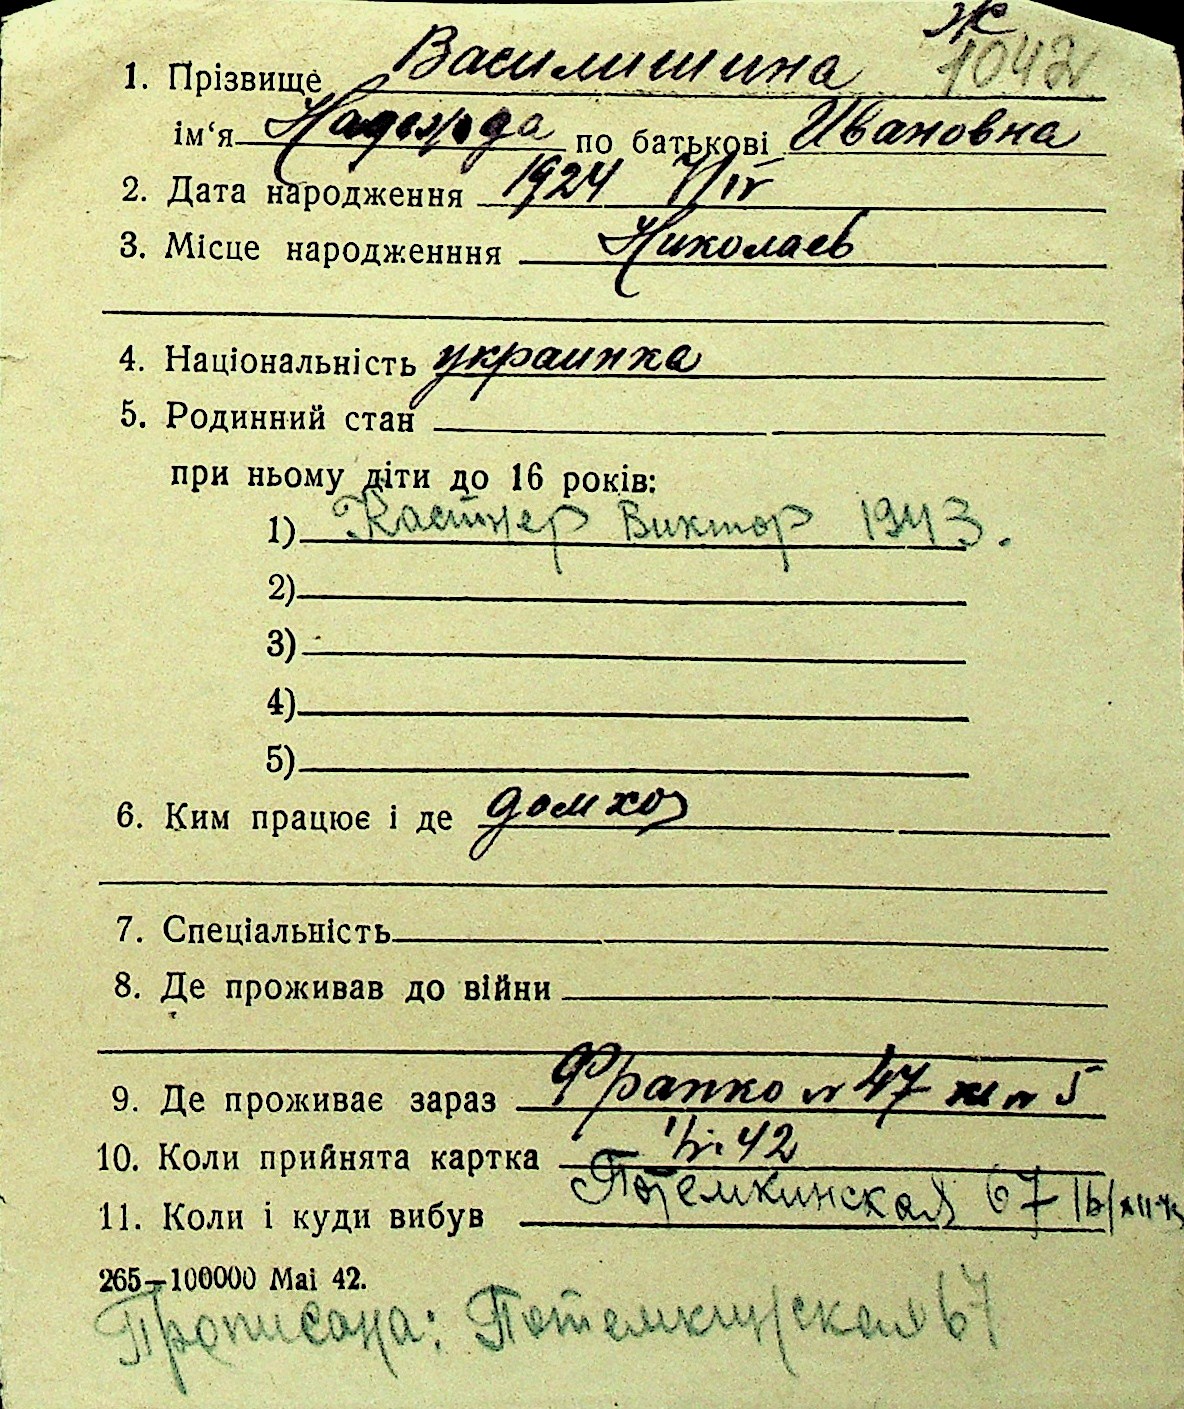 Ж
1. Прізвище Василишина 1042
ім‘я Надежда по батькові Ивановна
2. Дата народження 1924 7/IV
3. Місце народженння Николаев
4. Національність украинка
5. Родинний стан
при ньому діти до 16 років:
1) Кастнер Виктор 1943.
2)
3)
4)
5)
6. Ким працює і де домхоз
7. Спеціальність
8. Де проживав до війни
9. Де проживає зараз Франко № 47 кв № 5
10. Коли прийнята картка 42
11. Коли і куди вибув Потемкинская 67
265—100000 Mai 42.
Прописана: Потемкинская 67